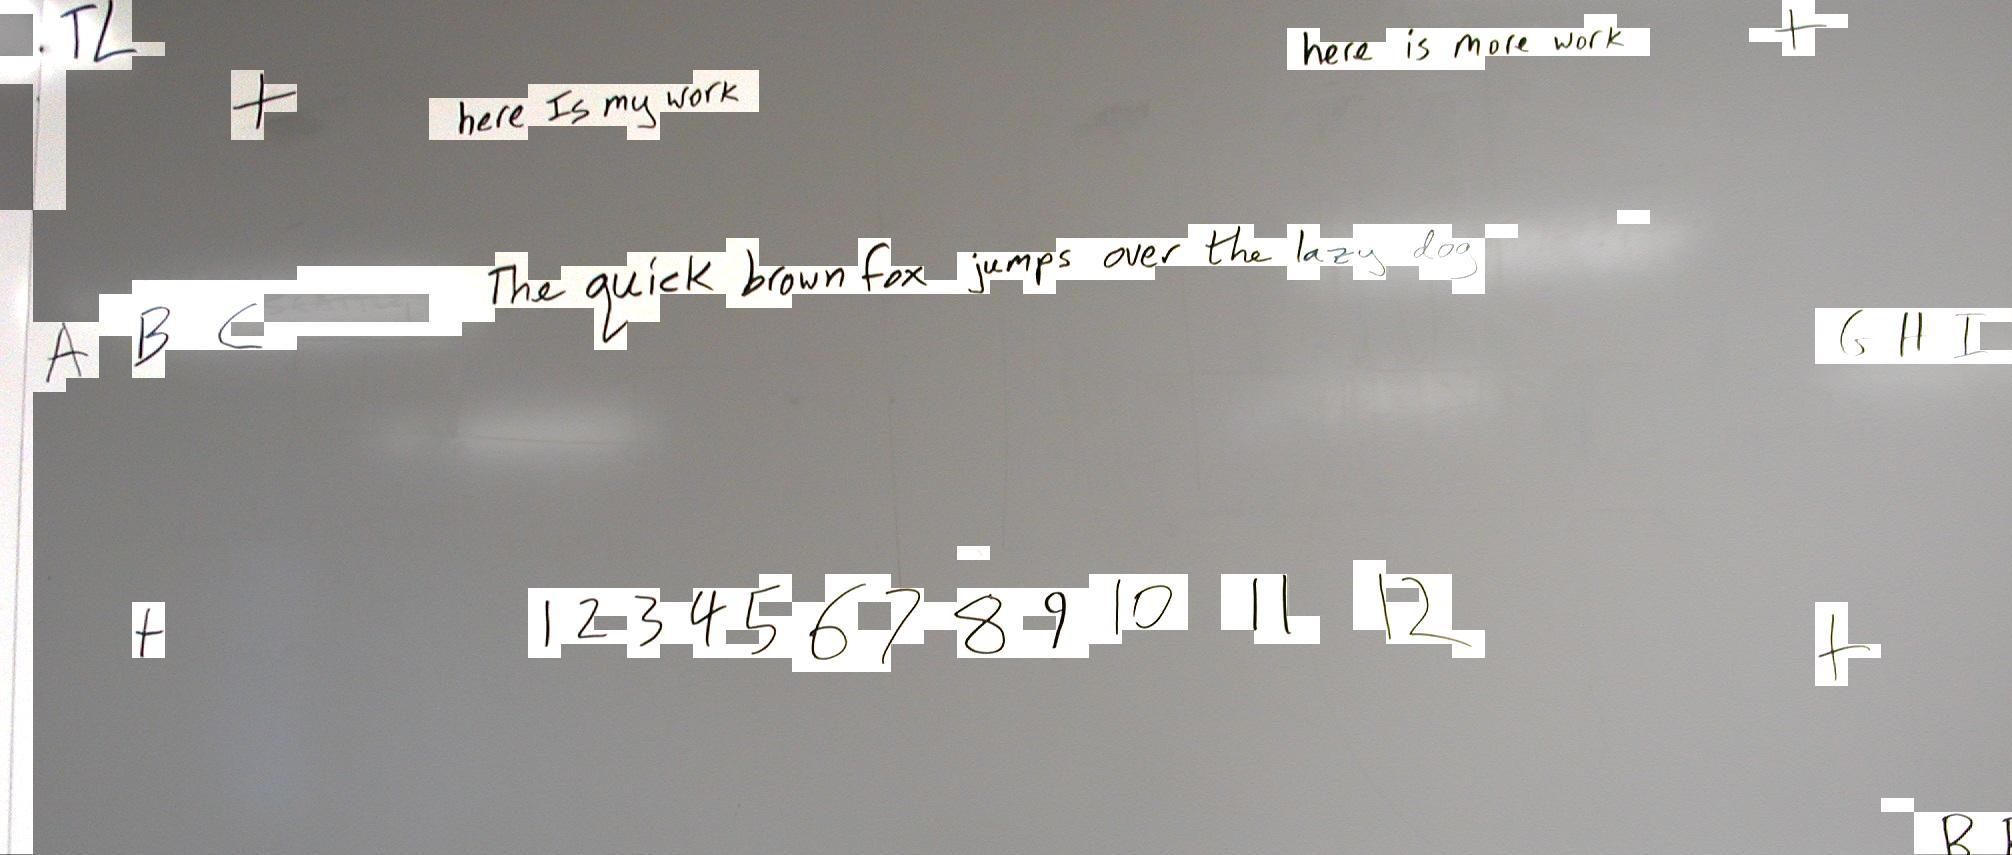 .TL
here is more work
+
+
here Is my work
The quick brown fox jumps over the lazy dog
A B C
G H I
1 2 3 4 5 6 7 8 9 10 11 12
+
+
B